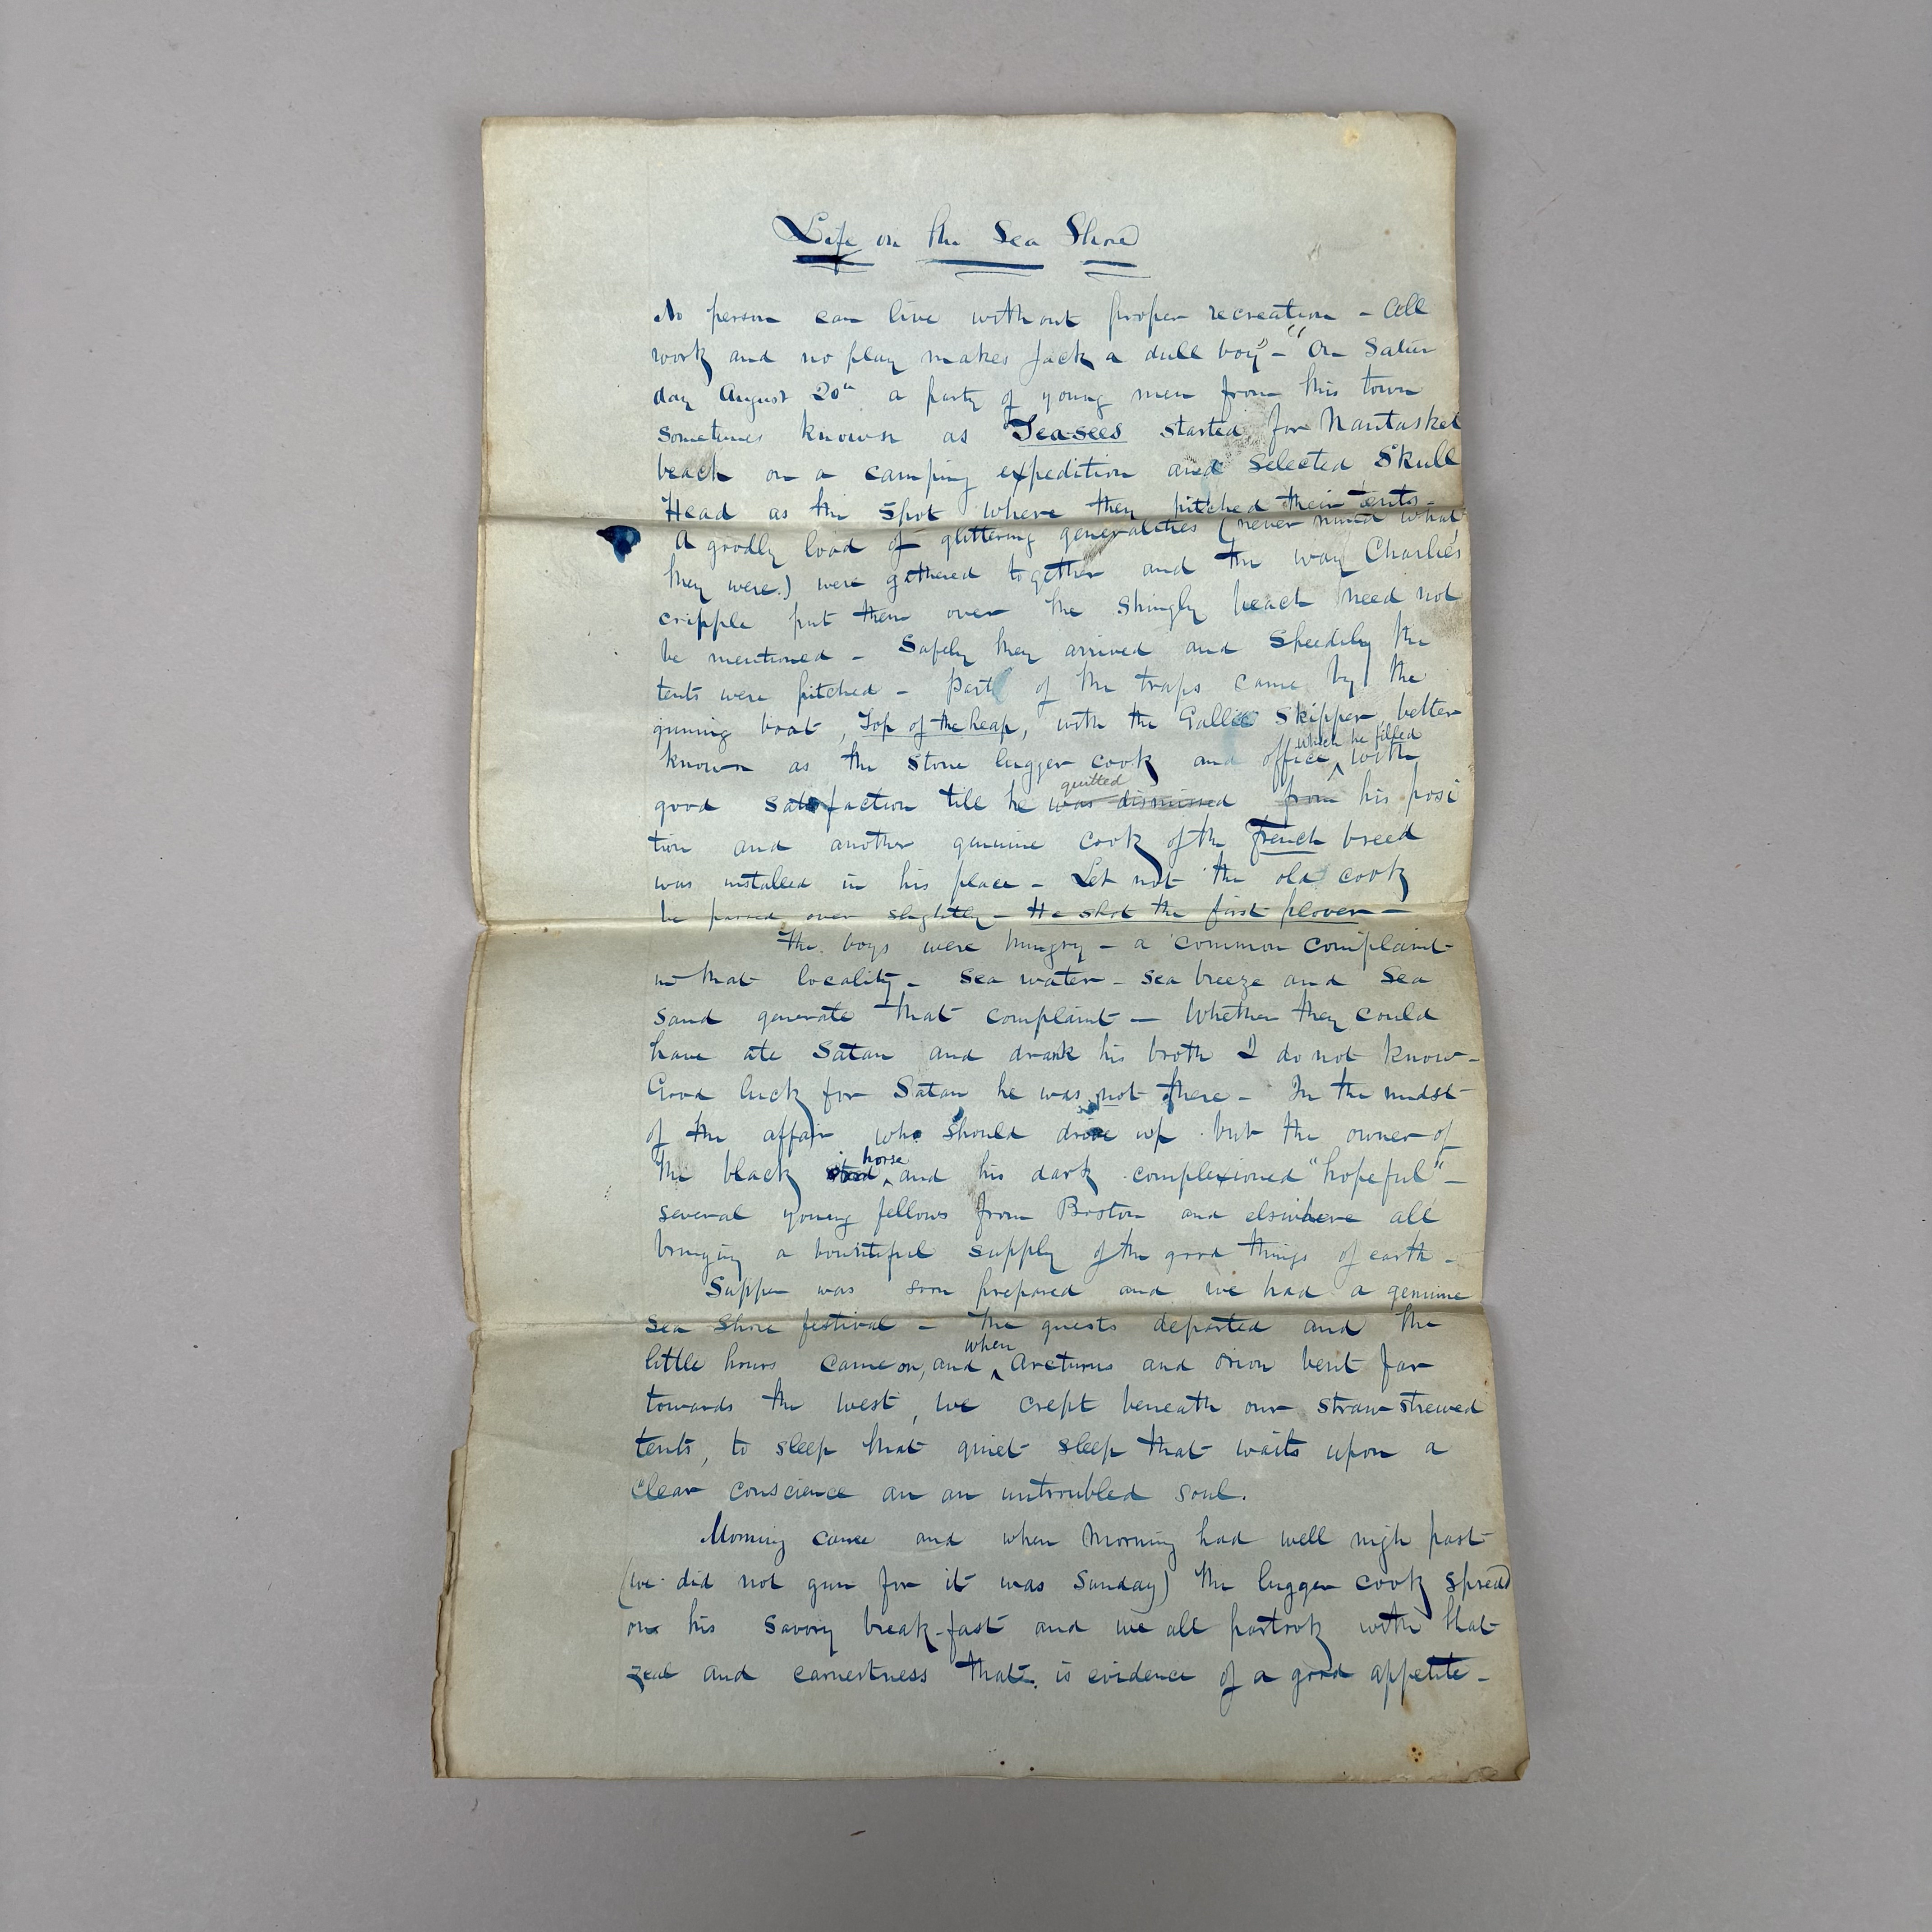 Life on the Sea Shore
No person can live without proper recreation - "All
work and no play makes Jack a dull boy" - On Satur
day August 20th a party of young men from this town
sometimes known as Teasees started for Nantasket
beach on a camping expedition and selected Skull
Head as the spot where they pitched their tents -
A goodly load of glittering generalities (never mind what
they were.) were gathered together and the way Charlie's
cripple put them over the shingly beach need not
be mentioned - Safely they arrived and speedily the
tents were pitched - Part of the traps came by the
gunning boat, Top of the heap, with the Gallic Skipper, better
known as the stone lugger cook and office which he filled with
good satisfaction till he was dismissed quitted from his posi
tion and another genuine cook of the French breed
was installed in his place - Let not the old cook
be passed over slightly - He shot the first plover -
The boys were hungry - a common complaint
in that locality - Sea water - sea breeze and Sea
Sand generate that complaint - Whether they could
have ate Satan and drank his broth I do not know -
Good luck for Satan he was not there - In the midst
of the affair who should drive up but the owner of
the black steed horse and his dark complexioned "hopeful" -
several young fellows from Boston and elswhere all
bringing a bountiful supply of the good things of earth -
Supper was soon prepared and we had a genuine
Sea Shore festival - The guests departed and the
little hours came on, and when Arcturus and Orion bent far
towards the west, we crept beneath our straw strewed
tents, to sleep that quiet sleep that waits upon a
clear conscience an an untroubled soul.
Morning came and when morning had well nigh past
(we did not gun for it was Sunday) the lugger cook spread
on his savory break-fast and we all partook with that
zeal and earnestness that is evidence of a good appetite -